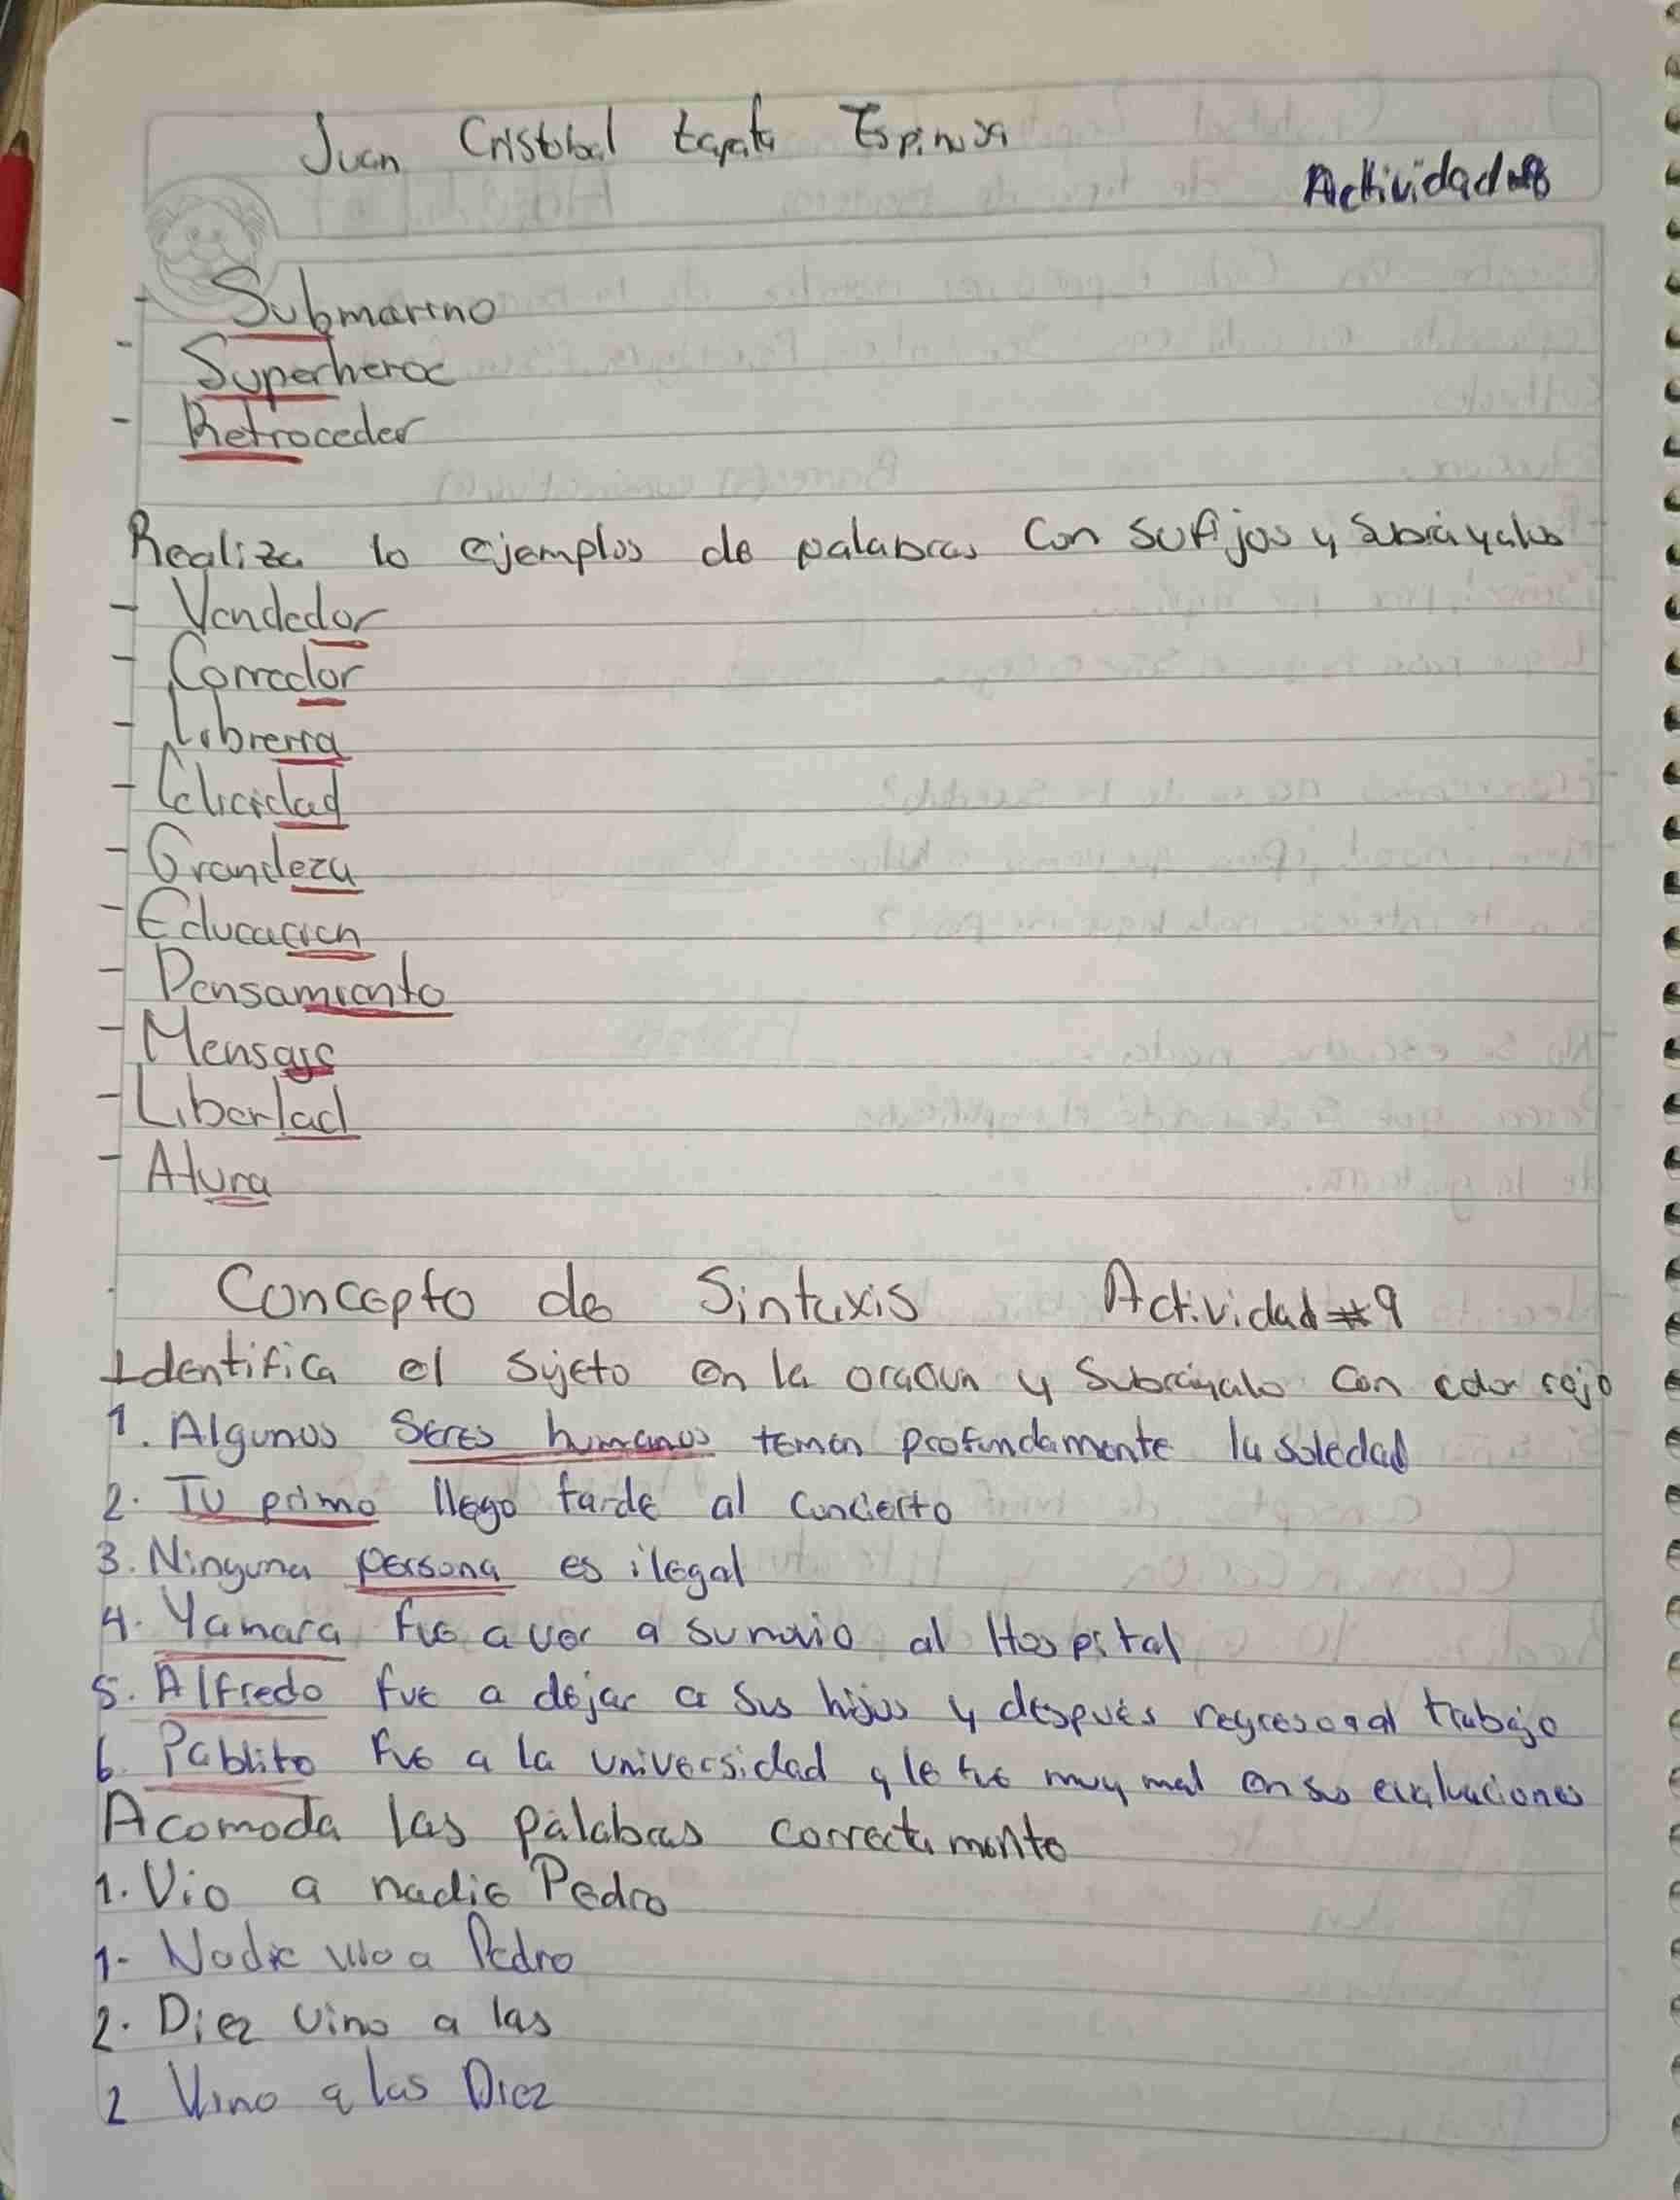 Juan Cristobal Zapata Espinosa
Actividad #8
- Submarino
- Superheroe
- Retroceder
Realiza 10 ejemplos de palabras con sufijos y subráyalos
- Vendedor
- Corredor
- Librería
- Felicidad
- Grandeza
- Educacion
- Pensamiento
- Mensaje
- Libertad
- Altura
Concepto de Sintaxis Actividad #9
Identifica el sujeto en la oración y Subráyalo con color rojo
1. Algunos Seres humanos temen profundamente la soledad
2. Tu primo llego tarde al concierto
3. Ninguna persona es ilegal
4. Yamara fue a ver a su novio al Hospital
5. Alfredo fue a dejar a sus hijos y después regreso al trabajo
6. Pablito fue a la universidad y le fue muy mal en sus evaluaciones
Acomoda las palabras correctamente
1. Vio a nadie Pedro
1- Nadie vio a Pedro
2. Diez vino a las
2 Vino a las Diez